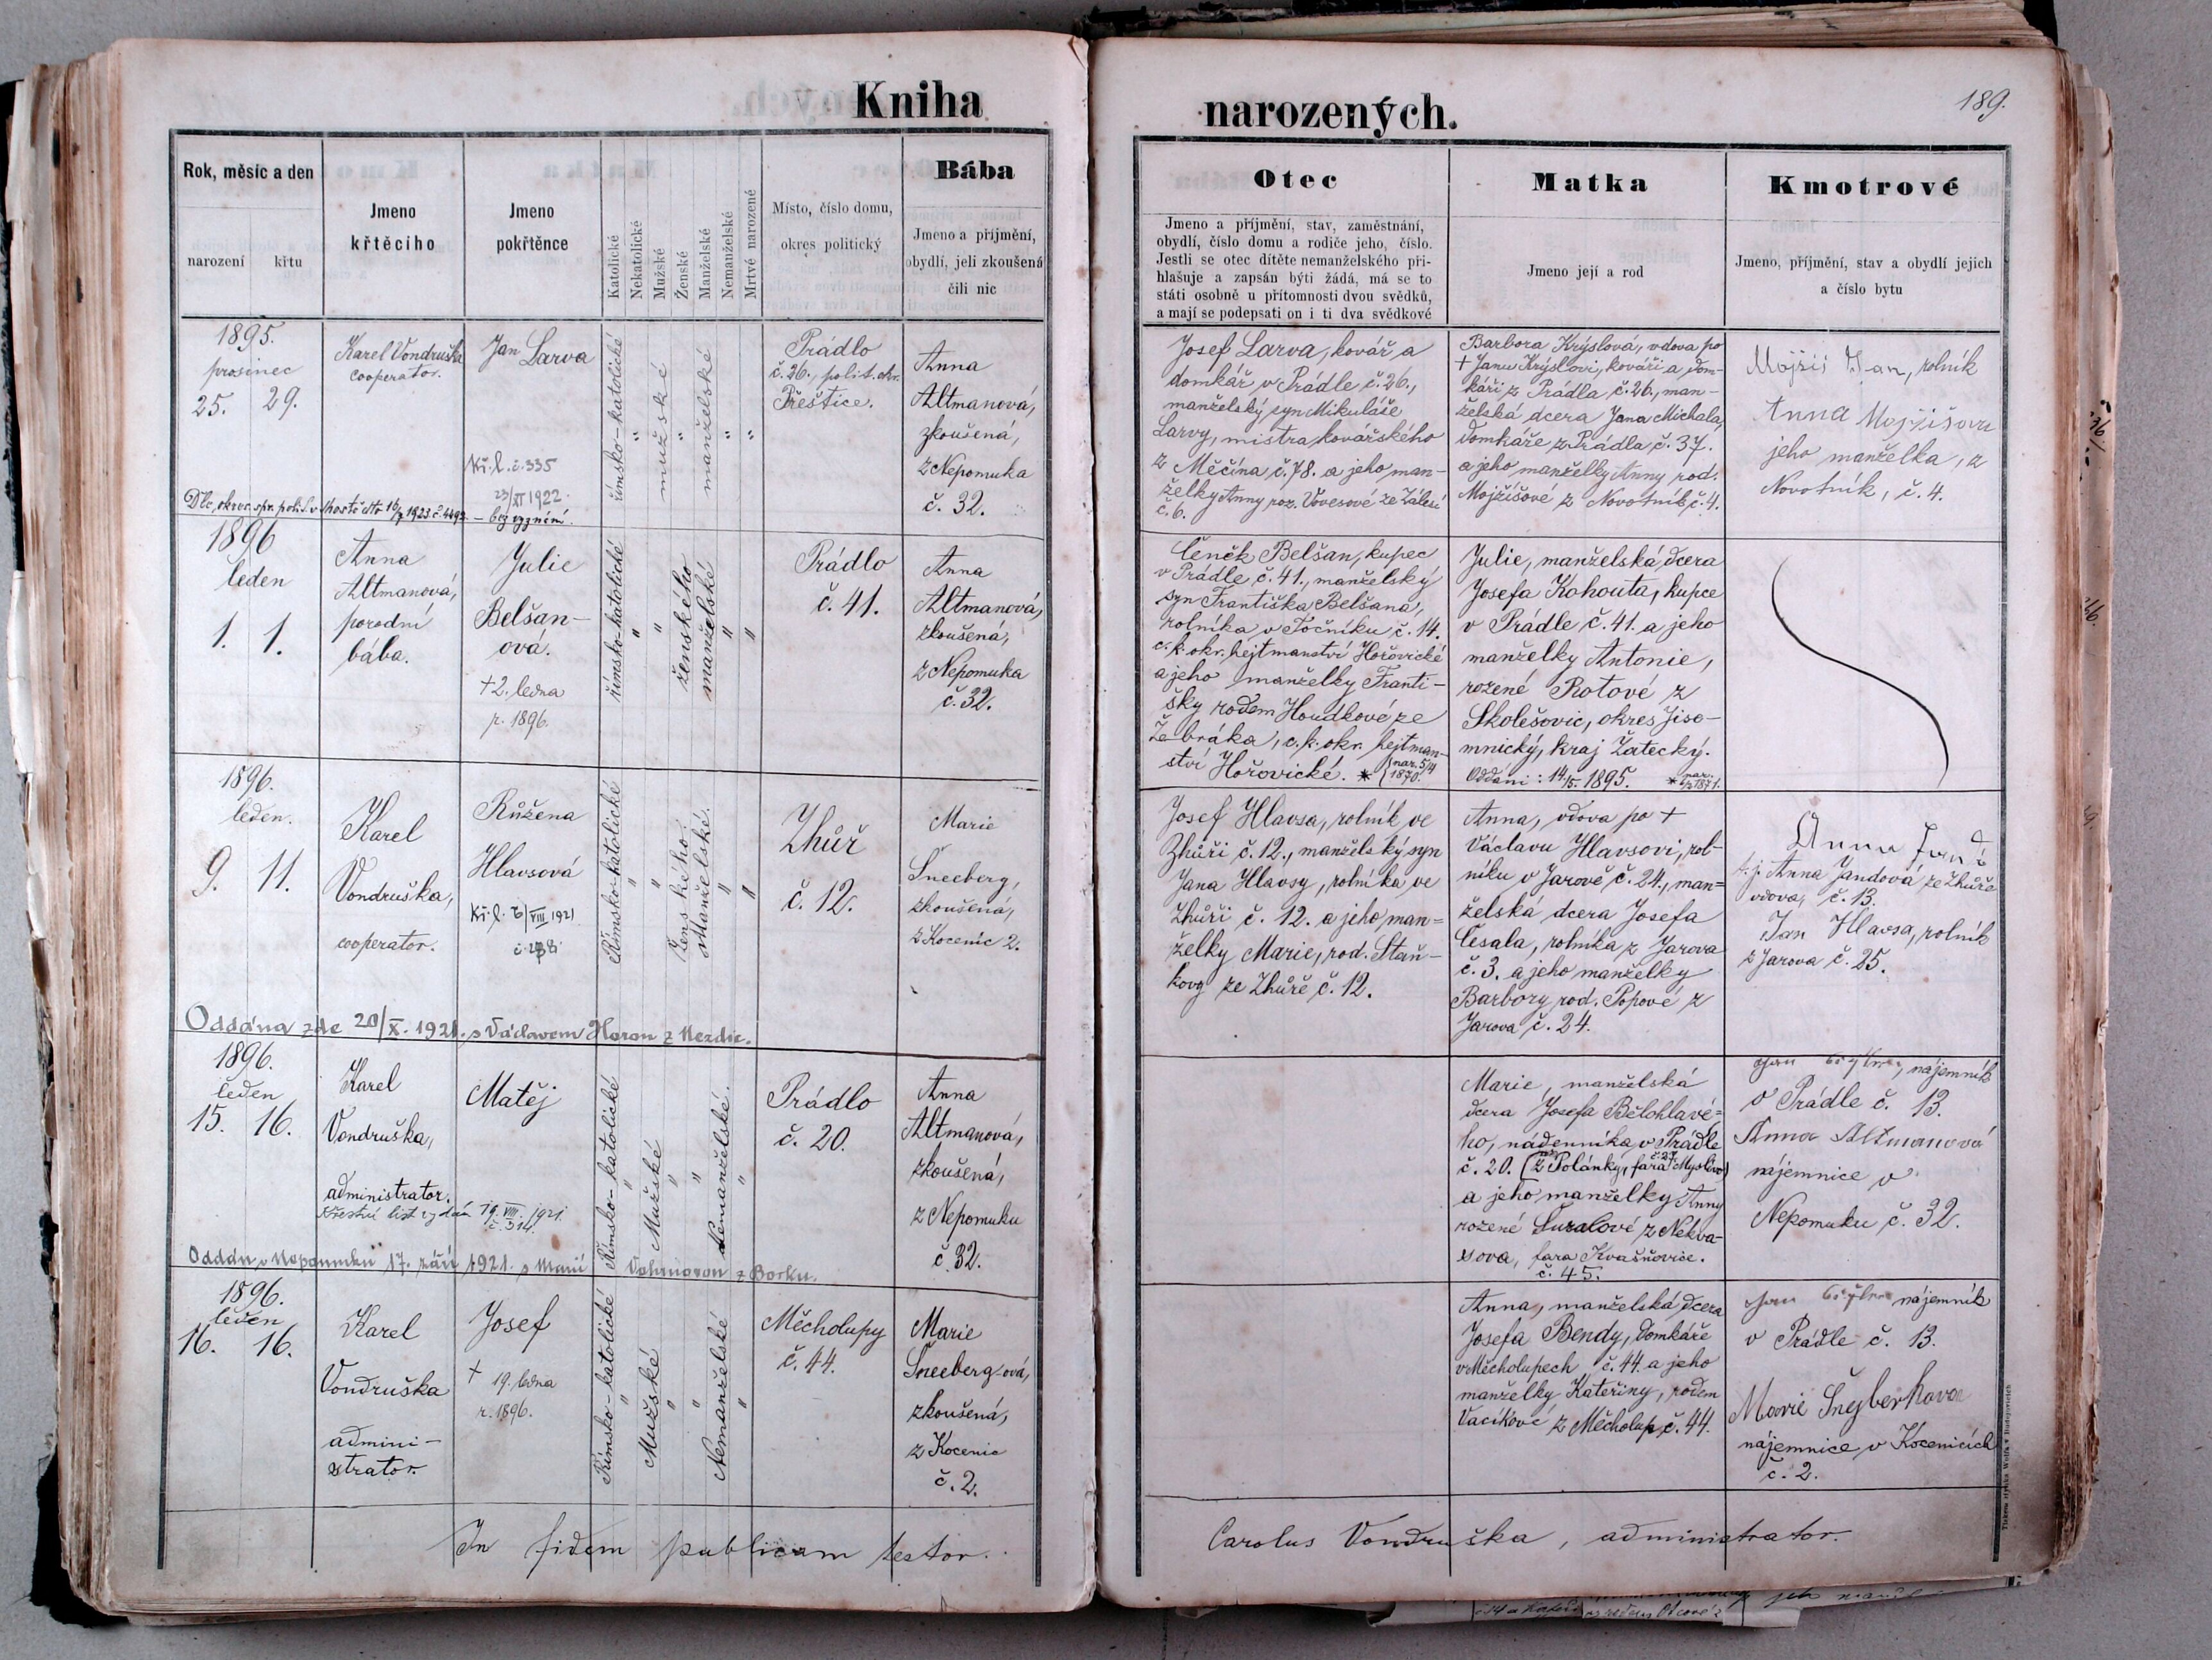 Kniha
narozených.
189.
Rok, měsíc a den
narození
křtu
Jmeno
křtěcího
Jmeno
pokřtěnce
Katolické
Nekatolické
Mužské
Ženské
Manželské
Nemanželské
Mrtvé narozené
Místo, číslo domu,
okres politický
Bába
Jmeno a příjmění,
obydlí, jeli zkoušená
čili nic
Otec
Jmeno a příjmění, stav, zaměstnání,
obydlí, číslo domu a rodiče jeho, číslo.
Jestli se otec dítěte nemanželského při-
hlašuje a zapsán býti žádá, má se to
státi osobně u přítomnosti dvou svědků,
a mají se podepsati on i ti dva svědkové
Matka
Jmeno její a rod
Kmotrové
Jmeno, příjmění, stav a obydlí jejich
a číslo bytu
1895.
prosinec
25. 29.
Karel Vondruška
cooperator.
Jan Larva
Kř. l. č. 335
23/XI 1922.
16/7 1923 č. 4492 – bez vyznání.
římsko-katolické
"
mužské
"
manželské
"
"
Prádlo
č. 26., polit. okr.
Přeštice.
Anna
Altmanová,
zkoušená,
z Nepomuka
č. 32.
Josef Larva, kovář a
domkář v Prádle č. 26.,
manželský syn Mikuláše
Larvy, mistra kovářského
z Měčína č. 78. a jeho man-
želky Anny roz. Vovesové ze Zálesí
č. 6.
Barbora Krýslová, vdova po
+ Janu Krýslovi, kováři a dom-
káři z Prádla č. 26., man-
želská dcera Jana Michala,
domkáře z Prádla č. 37.
a jeho manželky Anny rod.
Mojžíšové z Novotník č. 4.
Mojžíš Jan, rolník
Anna Mojžišova
jeho manželka, z
Novotník, č. 4.
1896
leden
1. 1.
Anna
Altmanová,
porodní
bába.
Julie
Belšan-
ová.
+ 2. ledna
r. 1896.
římsko-katolické
"
"
ženského
manželské
"
"
Prádlo
č. 41.
Anna
Altmanová,
zkoušená,
z Nepomuka
č. 32.
Čeněk Belšan, kupec
v Prádle č. 41., manželský
syn Františka Belšana,
rolníka v Točníku č. 14.
c. k. okr. hejtmanství Hořovické
a jeho manželky Franti-
šky rodem Houdkové ze
Žebráka, c. k. okr. hejtman-
ství Hořovické. * nar. 5/4
1870.
Julie, manželská dcera
Josefa Kohouta, kupce
v Prádle č. 41. a jeho
manželky Antonie,
rozené Rotové z
Skolešovic, okres Jise-
mnický, kraj Žatecký.
Oddáni: 14/5. 1895. * nar.
1871.
1896.
leden.
9. 11.
Karel
Vondruška,
cooperator.
Růžena
Hlavsová
Kř. l. VIII 1921
Římsko-katolické
"
"
Ženského
Manželské.
"
"
Zhůř
č. 12.
Marie
Šneeberg,
zkoušená,
z Kocenic 2.
Josef Hlavsa, rolník ve
Zhůři č. 12., manželský syn
Jana Hlavsy, rolníka ve
Zhůři č. 12. a jeho man=
želky Marie, rod. Staň-
kovy ze Zhůře č. 12.
Anna, vdova po +
Václavu Hlavsovi, rol-
níku v Jarově č. 24., man=
želská dcera Josefa
Česala, rolníka z Jarova
č. 3. a jeho manželky
Barbory rod. Popové z
Jarova č. 24.
Anna
t. j. Anna Jandová ze Zhůře
vdova, č. 13.
Jan Hlavsa, rolník
z Jarova č. 25.
Oddána zde 20/X. 1921. s Václavem Haron z Nezdic.
1896.
leden
15. 16.
Karel
Vondruška,
administrator.
Křestní list vydán 19. VIII. 1921.
č. 314.
Matěj
Římsko-katolické
"
Mužské
"
"
Nemanželské.
"
Prádlo
č. 20.
Anna
Altmanová,
zkoušená,
z Nepomuku
č. 32.
Marie, manželská
dcera Josefa Bělohlavé=
ho, nádenníka v Prádle
č. 20. (z Polánky, č. 27. fara Myslivo)
a jeho manželky Anny
rozené Šuralové z Nekva-
sova, fara Kvašňovice.
č. 45.
Jan, nájemník
v Prádle č. 13.
Anna Altmanová
nájemnice v
Nepomuku č. 32.
Oddán v Nepomuku 17. září 1921. s Marií z Borku.
1896.
leden
16. 16.
Karel
Vondruška
admini-
strator.
Josef
+ 19. ledna
r. 1896.
Římsko-katolické
"
Mužské
"
"
Nemanželské
"
Měcholupy
č. 44.
Marie
Šneeberg-ová,
zkoušená,
z Kocenic
č. 2.
Anna, manželská dcera
Josefa Bendy, domkáře
v Měcholupech č. 44. a jeho
manželky Kateřiny, rodem
Vacíkové z Měcholup č. 44.
Jan nájemník
v Prádle č. 13.
Marie Šnejberkova
nájemnice v Kocenicích
č. 2.
In fidem publicam testor.
Carolus Vondruška, administrator.